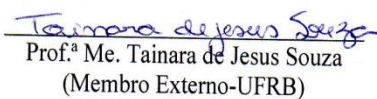 Tainara de jesus Souza
Prof.ª Me. Tainara de Jesus Souza
(Membro Externo-UFRB)